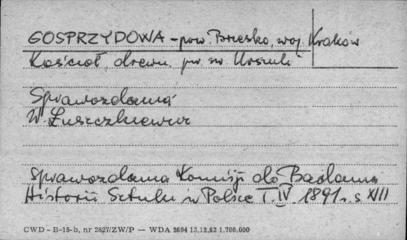 GOSPRZYDOWA - pow. Brzesko, woj. Kraków
Kościół, drewn. pw. św. Urszuli
Sprawozdania
W. Łuszczkiewicz
Sprawozdania Komisji do Badania
Historii Sztuki w Polsce T. IV 1891 r. s XIII
CWD - B-15-b, nr 2827/ZW/P — WDA 3694 13.12.52 1.700.000